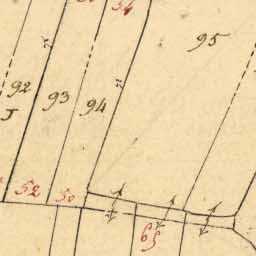 54
95
92
93
94
J
52
50
63